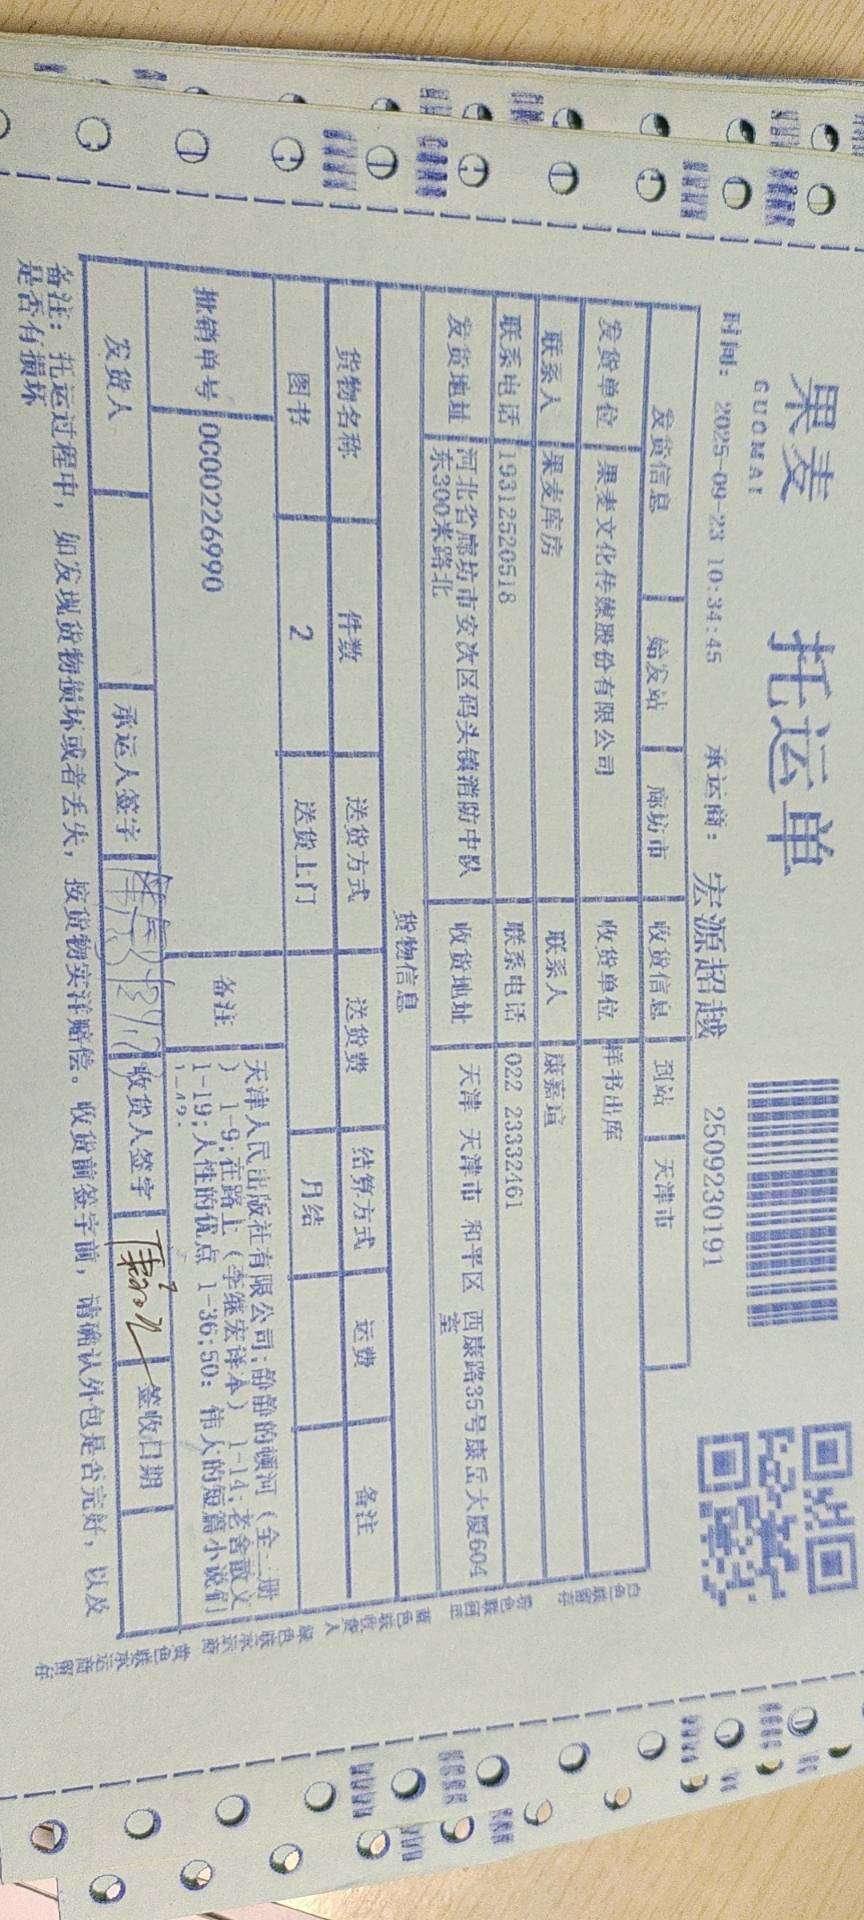 果麦
GUOMAI
托运单
时间: 2025-09-23 10:34:45 承运商: 宏源超越 2509230191
发货信息 始发站 廊坊市 收货信息 到站 天津市
发货单位 果麦文化传媒股份有限公司 收货单位 样书出库
联系人 果麦库房 联系人 康嘉瑄
联系电话 19312520518 联系电话 022 23332461
发货地址 河北省廊坊市安次区码头镇消防中队
东300米路北
收货地址 天津 天津市 和平区 西康路35号康岳大厦604
室
货物信息
货物名称 件数 送货方式 送货费 结算方式 运费 备注
图书 2 送货上门 月结
批销单号 0C00226990 备注
天津人民出版社有限公司:静静的顿河(全三册
) 1-9:在路上(李继宏译本) 1-14:老舍散文
1-19:人性的优点 1-36:50: 伟大的短篇小说们
1-49:
发货人 承运人签字 收货人签字 签收日期
备注: 托运过程中, 如发现货物损坏或者丢失, 按货物实洋赔偿。收货前签字前, 请确认外包是否完好, 以及
是否有损坏
白色联留存 蓝色联收货人 绿色联承运商 黄色联承运商留存